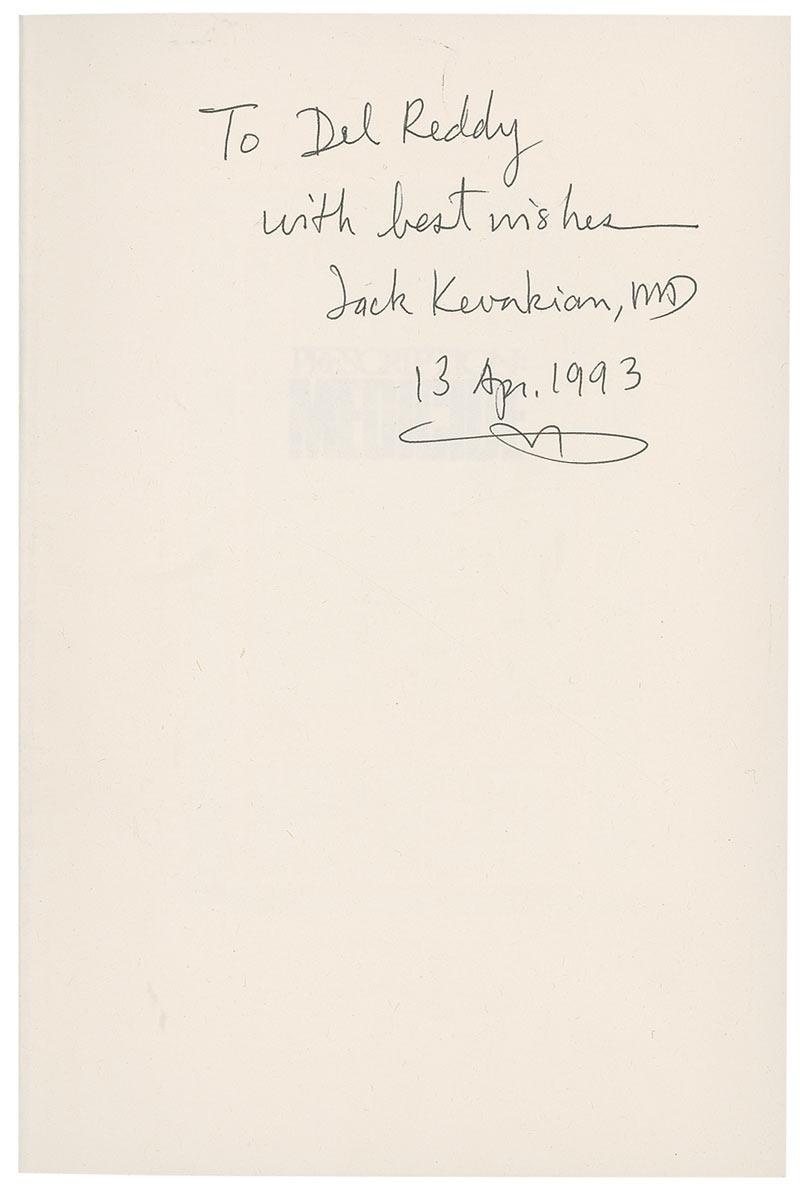 To Del Reddy
with best wishes
Jack Kevorkian, MD
13 Apr. 1993